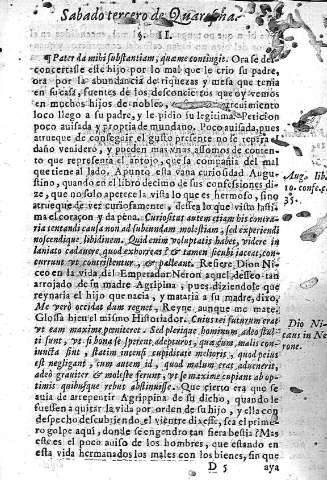 Sabado tercero de Quaresma.
§. II.
Pater da mihi substantiam, quæ me contingit. Ora se des-
concertasse este hijo por lo mal que le crio su padre,
ora por la abundancia de riquezas y mesa que tenia
en su casa, fuentes de los desconciertos que oy vemos
en muchos hijos de nobles,
loco llego a su padre, y le pidio su legitima. Peticion
poco auisada y propria de mundano. Poco auisada, pues
a trueque de conseguir el gusto presente no se repara
daño venidero, y pueden mas vnas assomos de conten-
to que representa el antojo, que la compañia del mal
que tiene al lado. Apunto esta vana curiosidad Augu-
stino, quando en el libro decimo de sus confessiones di-
ze, que no solo apetece la vista lo que es hermoso, sino
a trueque de ver curiosamente, dessea lo que vista lasti-
ma el coraçon y da pena. Curiositas autem etiam his contra-
ria tentandi causa non ad subeundam molestiam, sed experiendi
noscendique libidinem. Quid enim voluptatis habet, videre in
laniato cadauere quod exhorreas? & tamen sicubi iaceat, con-
currunt vt contristentur, & palleant. Refiere Dion Ni-
ceo en la vida del Emperador Neron aquel desseo tan
arrojado de su madre Agripina, pues diziendole que
reynaria el hijo que nacia, y mataria a su madre, dixo,
Me verò occidat dum regnet, Reyne, aunque me mate.
Glossa hiere el mismo Historiador. Cuius rei futurum erat
vt eam maxime peniteret. Sed plerique hominum adeo stul-
ti sunt, vt si bona se sperent adepturos, quæ cum malis con-
iuncta sint, statim intensi cupiditate melioris, quod peius
est negligant, cum autem id, quod malum erat aduenerit,
adeò grauiter & moleste ferunt, vt se maxime cupiant ab op-
timis quibusque rebus abstinuisse. Que cierto era que se
auia de arrepentir Agrippina de su dicho, quando le
fuessen a quitar la vida por orden de su hijo, y ella con
despecho descubriendo el vientre dixesse, sea el prime-
ro golpe aqui, donde se engendro tan fiera bestia? Mas
este es el poco auiso de los hombres, que estando en
esta vida hermanados los males con los bienes, sin que
D 5 aya
Aug. lib.
10. confe. c.
35.
Dio Ni-
cæus in Ne
rone.